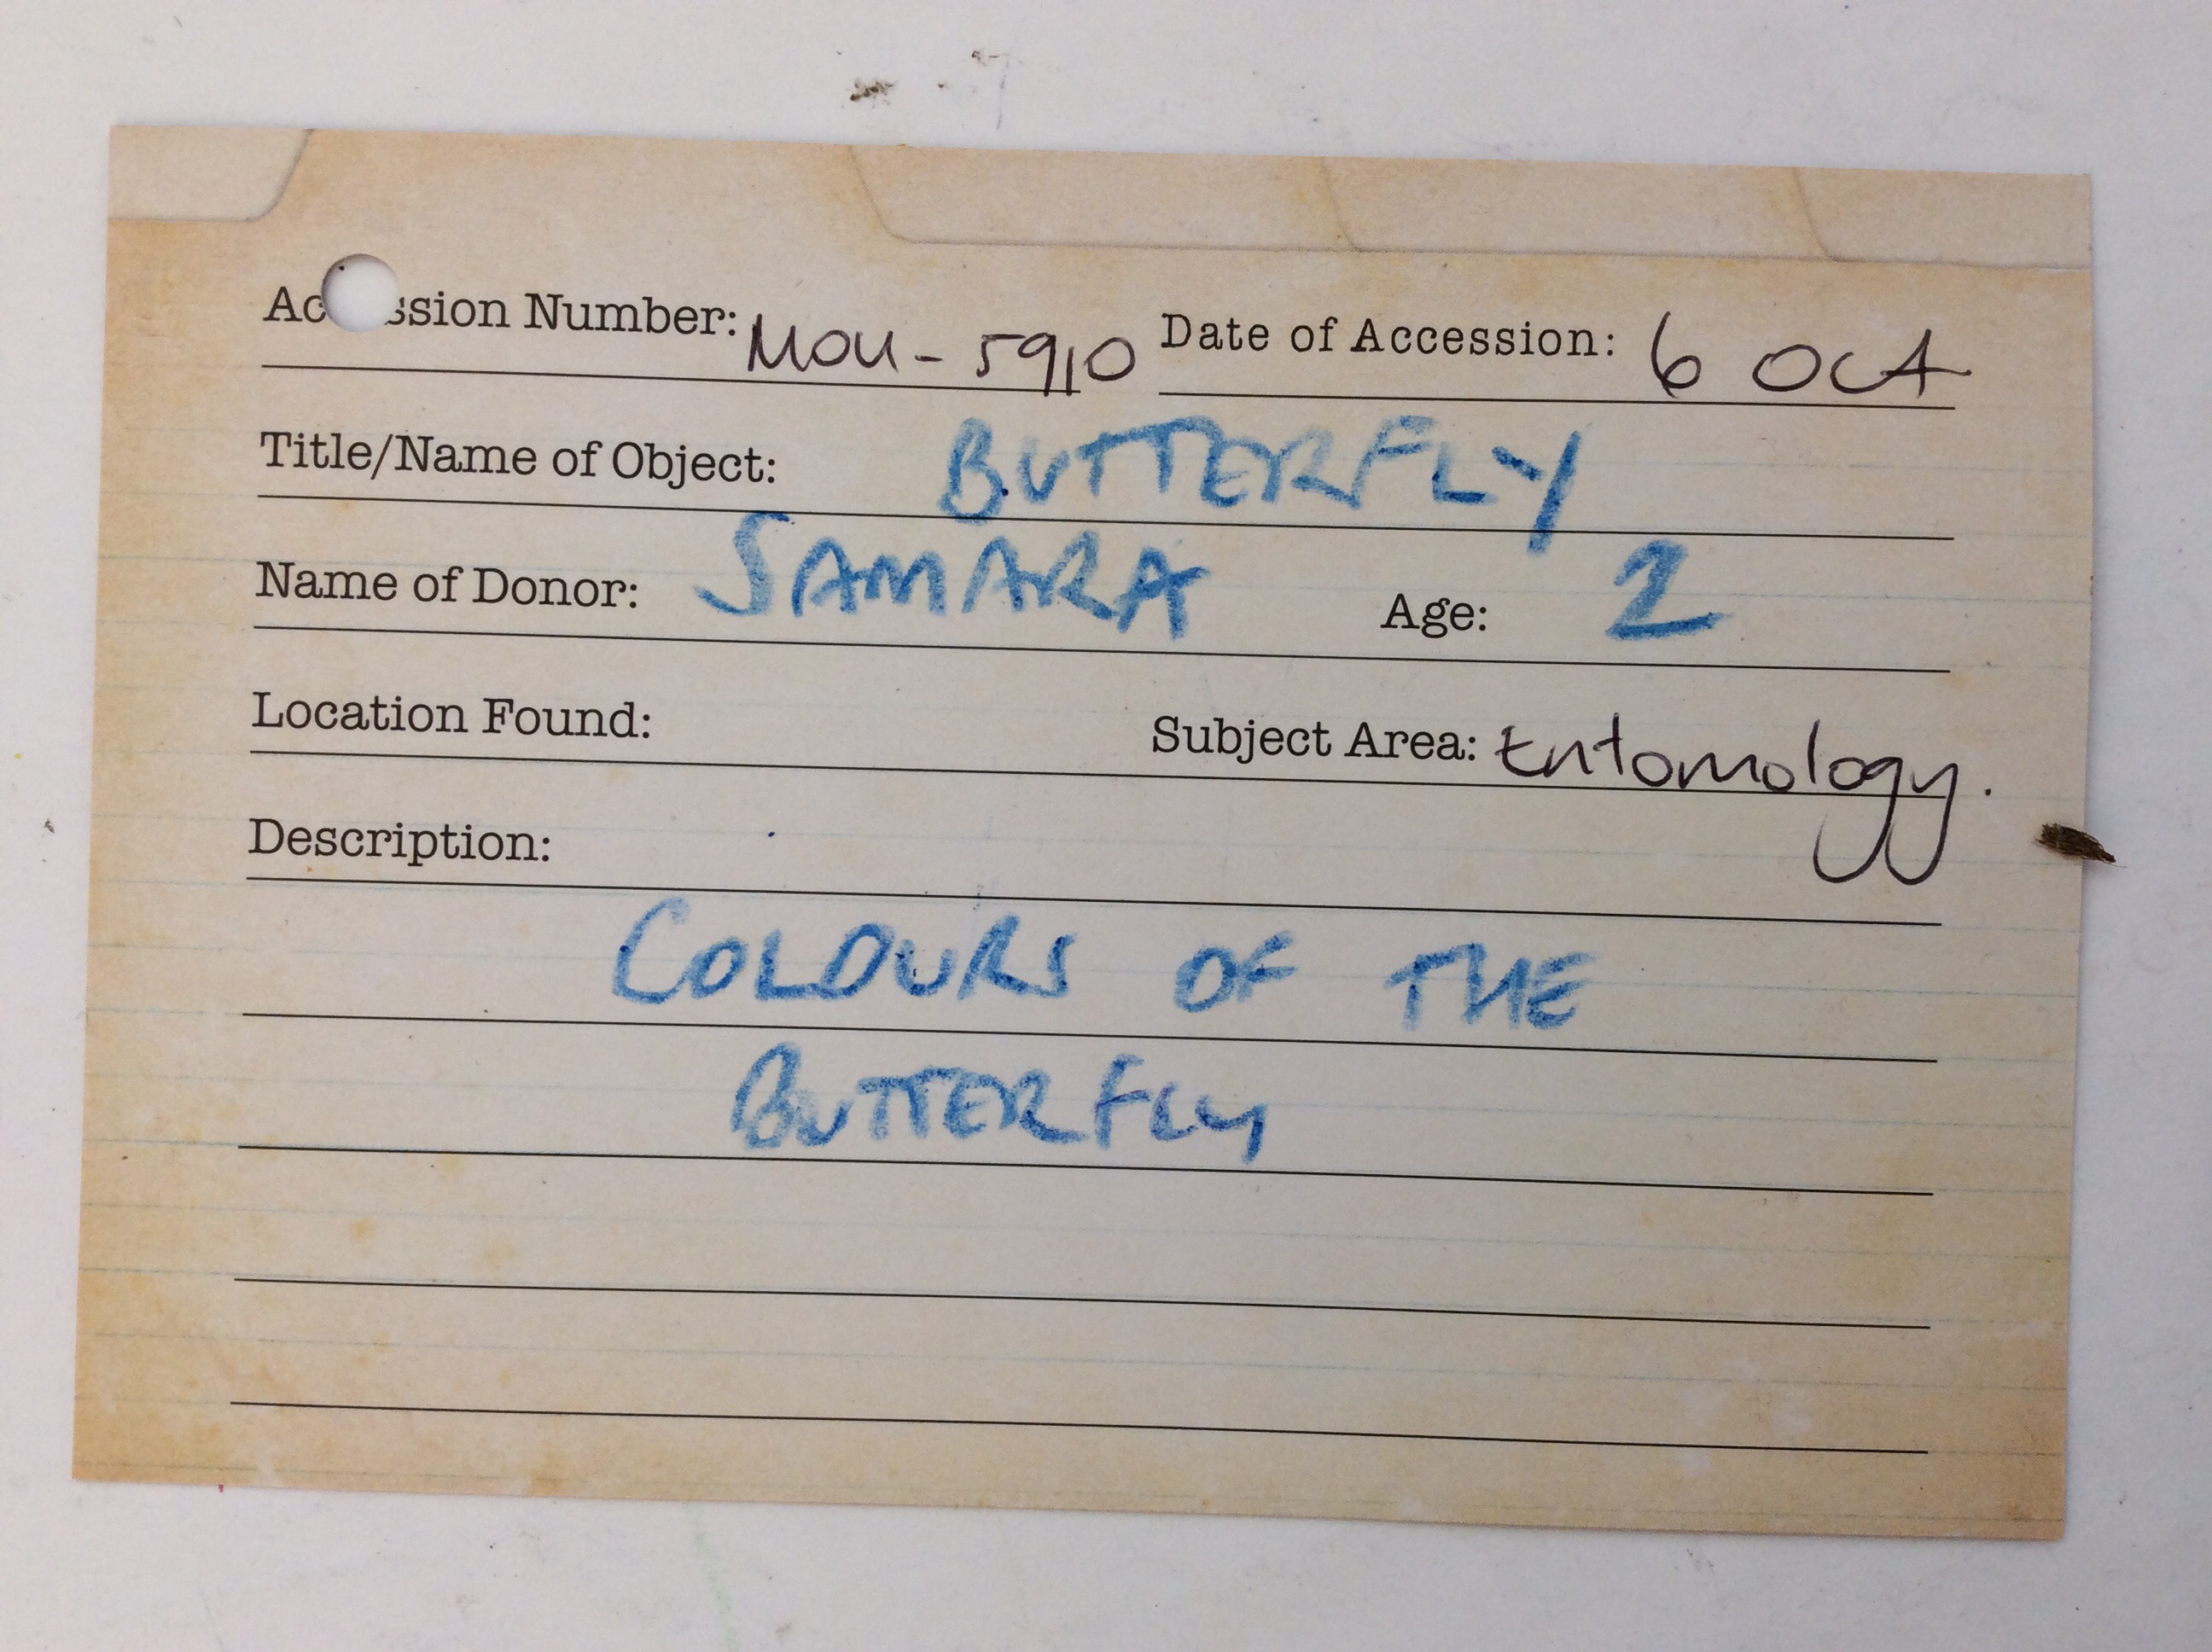 Ac ssion Number: MOU - 5910 Date of Accession: 6 Oct
Title/Name of Object: BUTTERFLY
Name of Donor: SAMARA Age: 2
Location Found: Subject Area: Entomology.
Description:
COLOURS OF THE
BUTTERFLY